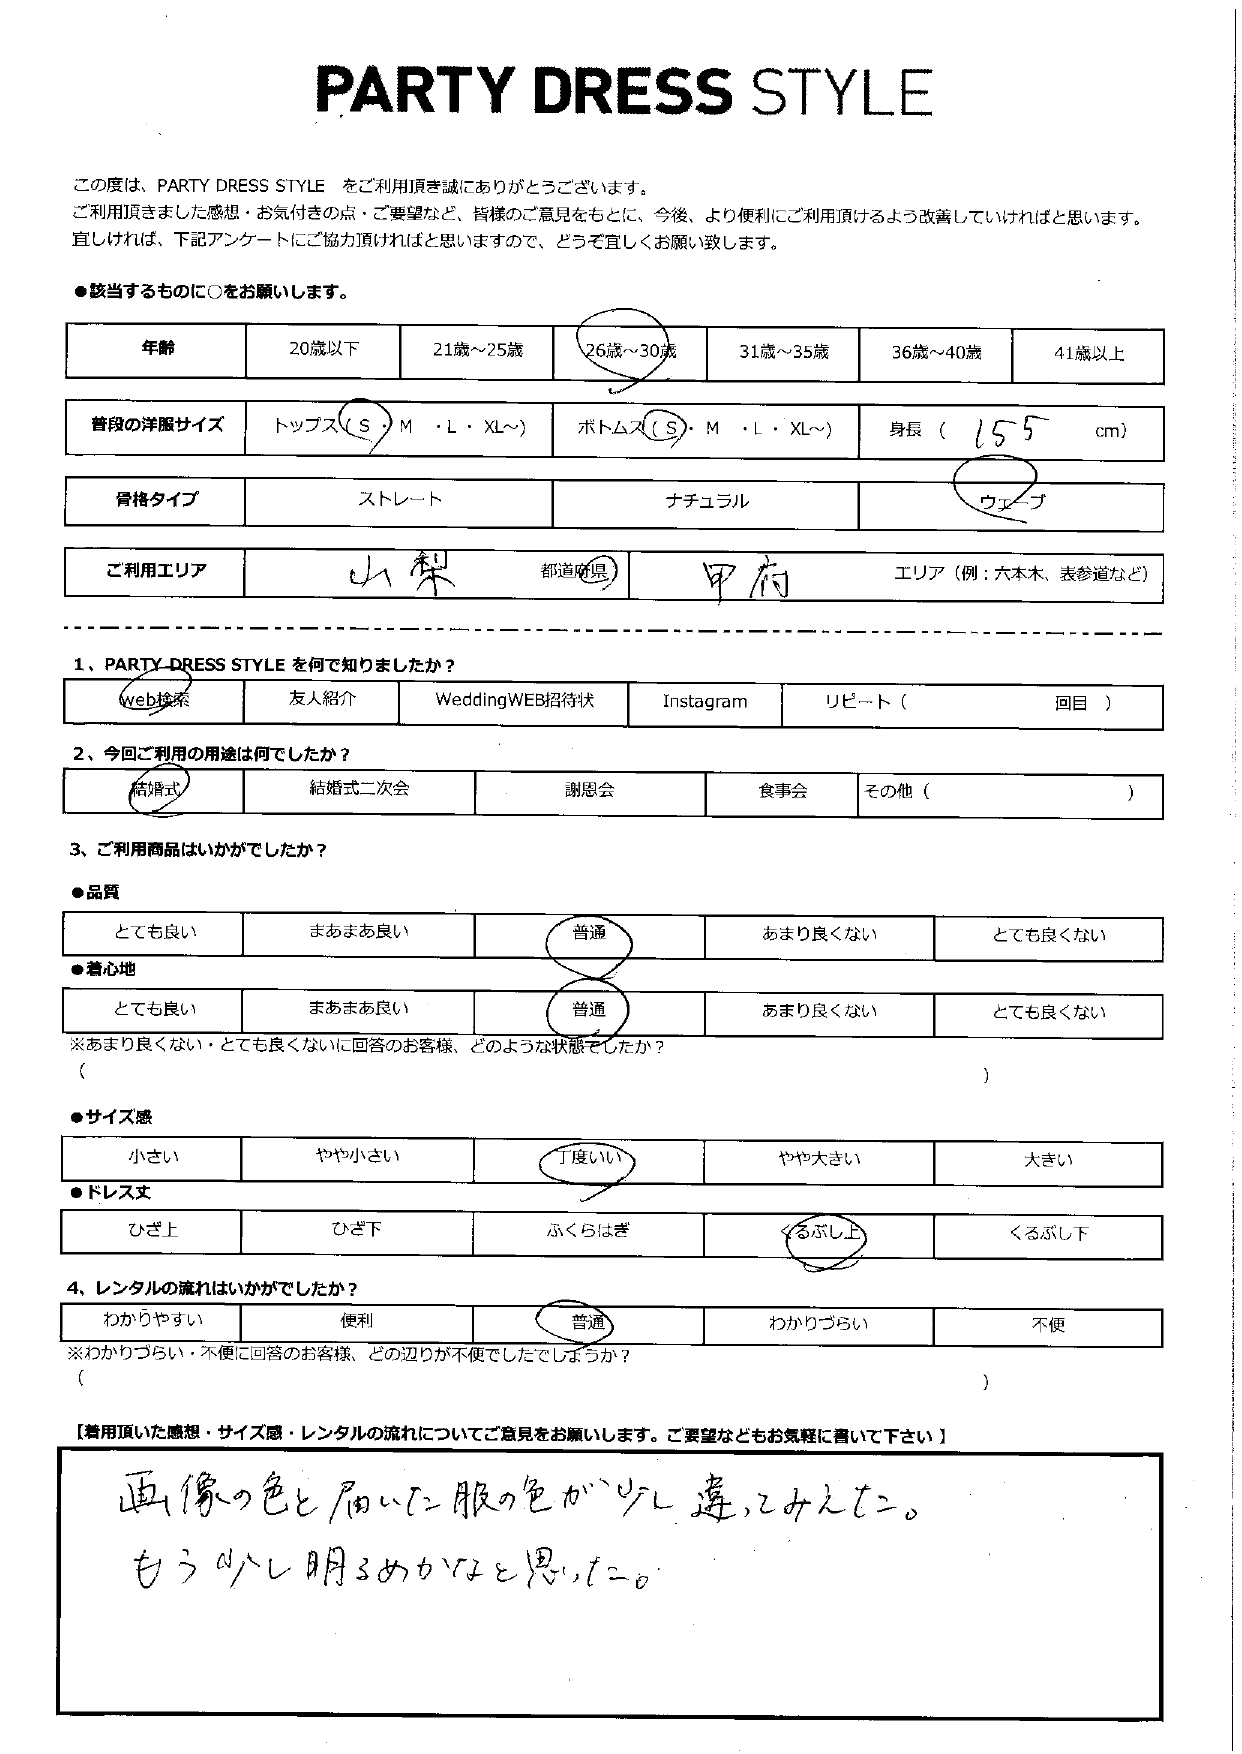 PARTY DRESS STYLE
この度は、PARTY DRESS STYLE　をご利用頂き誠にありがとうございます。
ご利用頂きました感想・お気付きの点・ご要望など、皆様のご意見をもとに、今後、より便利にご利用頂けるよう改善していければと思います。
宜しければ、下記アンケートにご協力頂ければと思いますので、どうぞ宜しくお願い致します。
●該当するものに○をお願いします。
年齢 20歳以下 21歳～25歳 26歳～30歳 31歳～35歳 36歳～40歳 41歳以上
普段の洋服サイズ トップス（ S ・ M ・L ・ XL～） ボトムス（ S ・ M ・L ・ XL～） 身長 （ 155 cm）
骨格タイプ ストレート ナチュラル ウェーブ
ご利用エリア 山梨 都道府県 甲府 エリア（例：六本木、表参道など）
1、PARTY DRESS STYLE を何で知りましたか？
web検索 友人紹介 WeddingWEB招待状 Instagram リピート（ 回目 ）
2、今回ご利用の用途は何でしたか？
結婚式 結婚式二次会 謝恩会 食事会 その他（ ）
3、ご利用商品はいかがでしたか？
●品質
とても良い まあまあ良い 普通 あまり良くない とても良くない
●着心地
とても良い まあまあ良い 普通 あまり良くない とても良くない
※あまり良くない・とても良くないに回答のお客様、どのような状態でしたか？
（ ）
●サイズ感
小さい やや小さい 丁度いい やや大きい 大きい
●ドレス丈
ひざ上 ひざ下 ふくらはぎ くるぶし上 くるぶし下
4、レンタルの流れはいかがでしたか？
わかりやすい 便利 普通 わかりづらい 不便
※わかりづらい・不便に回答のお客様、どの辺りが不便でしたでしょうか？
（ ）
【着用頂いた感想・サイズ感・レンタルの流れについてご意見をお願いします。ご要望などもお気軽に書いて下さい 】
画像の色と届いた服の色が少し違ってみえた。
もう少し明るめかなと思った。